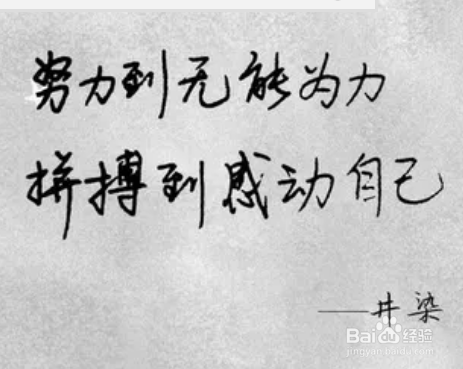 努力到无能为力
拼搏到感动自己
——井染
Baidu经验
jingyan.baidu.com